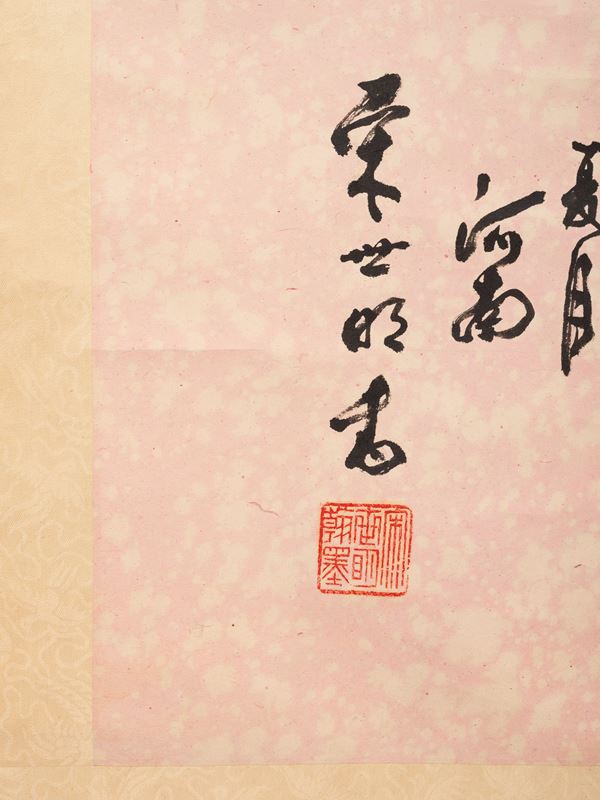 夏月
河南
宋世明書
宋世明翰墨